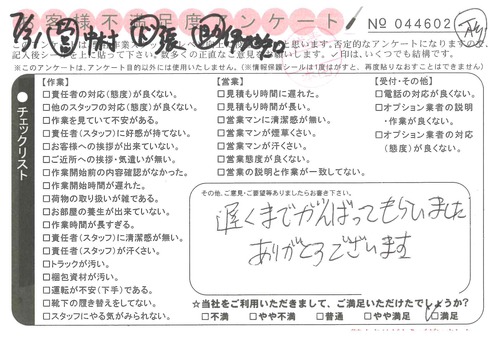 お客様不満足度アンケート
7/31
№ 044602
記入後シールを上に貼って下さい。数多くの正直なご意見お願い致します。✓印は、いくつでも結構です。
※このアンケートは、アンケート目的以外には使用いたしません。(※情報保護シールは1度はがすと、再度貼りなおすことはできません)
チェックリスト
【作業】
□責任者の対応(態度)が良くない。
□他のスタッフの対応(態度)が良くない。
□作業を見ていて不安がある。
□責任者(スタッフ)に好感が持てない。
□お客様への挨拶が出来ていない。
□ご近所への挨拶・気遣いが無い。
□作業開始前の内容確認がなかった。
□作業開始時間が遅れた。
□荷物の取り扱いが雑である。
□お部屋の養生が出来ていない。
□作業時間が長すぎる。
□責任者(スタッフ)に清潔感が無い。
□責任者(スタッフ)が汗くさい。
□トラックが汚い。
□梱包資材が汚い。
□運転が不安(下手)である。
□靴下の履き替えをしてない。
□スタッフにやる気がみられない。
【営業】
□見積もり時間に遅れた。
□見積もり時間が長い。
□営業マンに清潔感が無い。
□営業マンが煙草くさい。
□営業マンが汗くさい。
□営業態度が良くない。
□営業の説明と作業が一致してない。
【受付・その他】
□電話の対応が良くない。
□オプション業者の説明
・作業が良くない。
□オプション業者の対応
(態度)が良くない。
その他、ご意見・ご要望等ありましたらお書き下さい。
遅くまでがんばってもらいました
ありがとうございます
☆当社をご利用いただきまして、ご満足いただけたでしょうか?
□不満 □やや不満 □普通 □やや満足 ☑満足